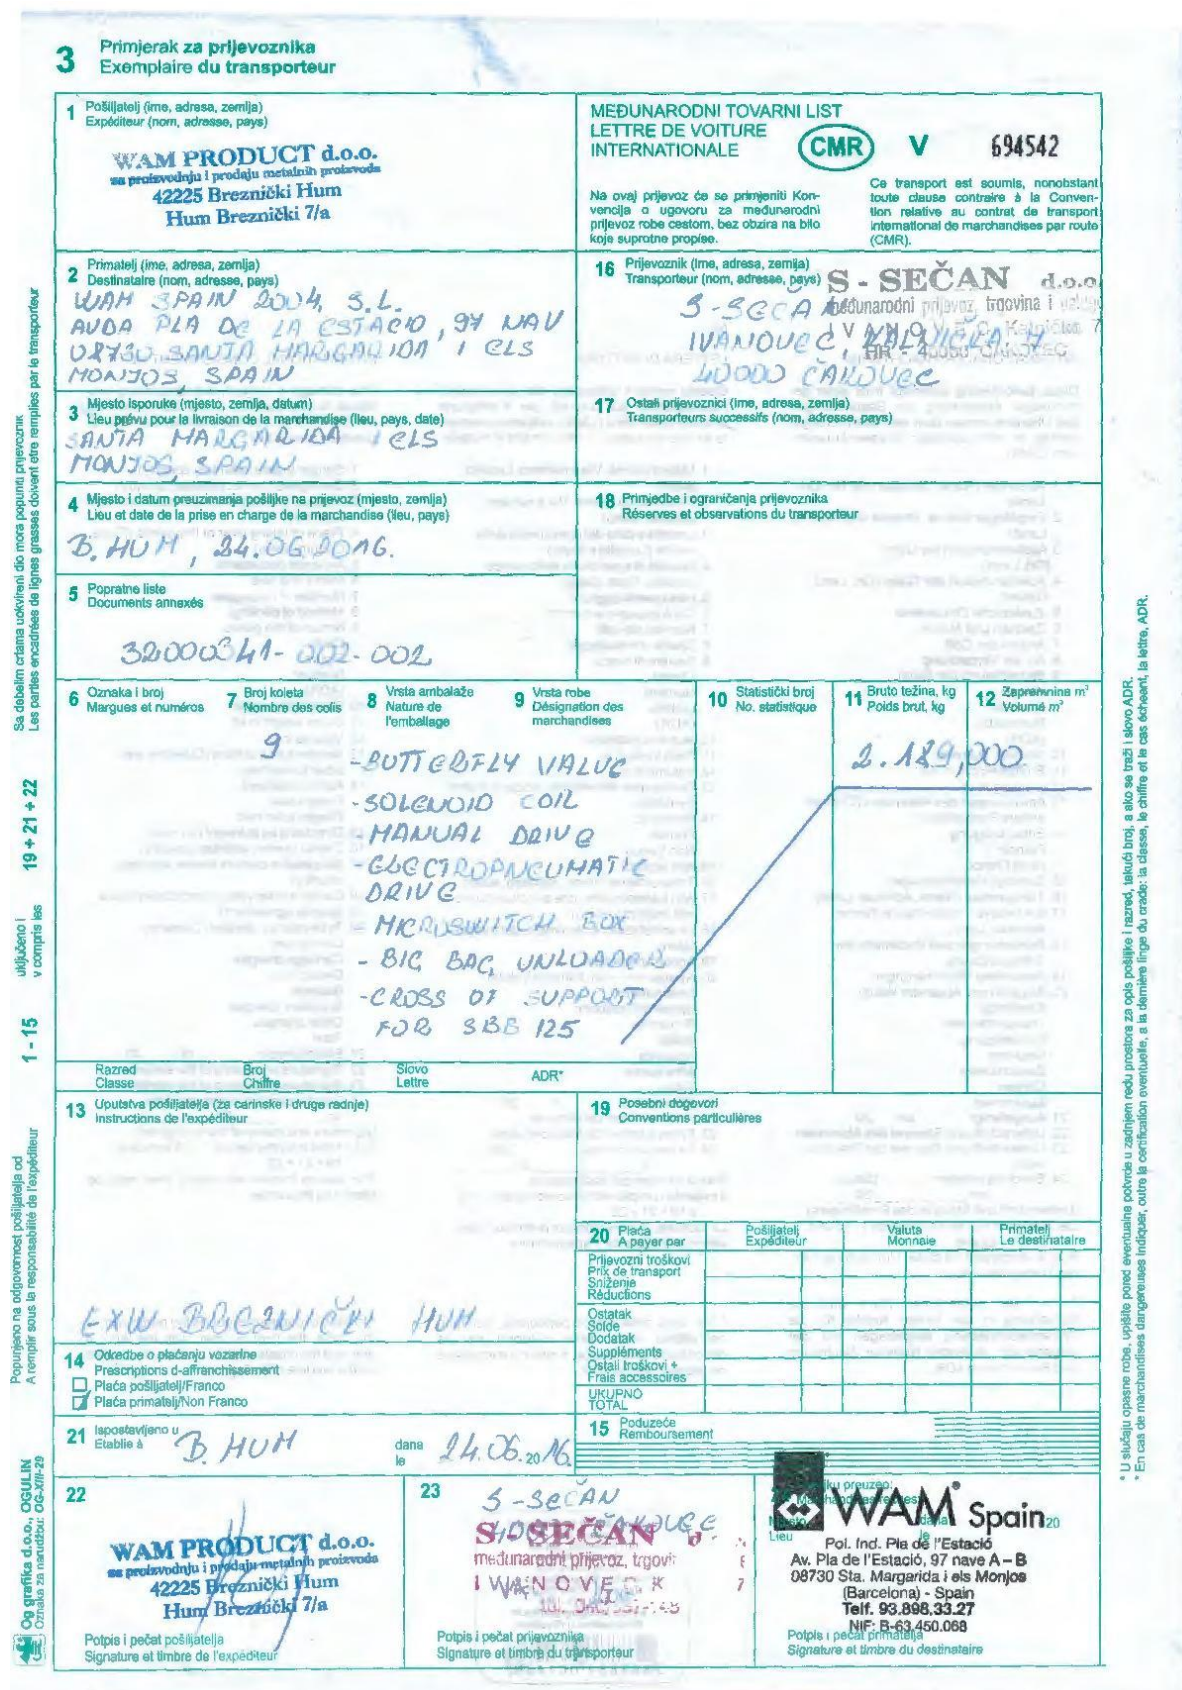 3
Primjerak za prijevoznika
Exemplaire du transporteur
1 Pošiljatelj (ime, adresa, zemlja)
Expéditeur (nom, adresse, pays)
WAM PRODUCT d.o.o.
za proizvodnju i prodaju metalnih proizvoda
42225 Breznički Hum
Hum Breznički 7/a
MEĐUNARODNI TOVARNI LIST
LETTRE DE VOITURE
INTERNATIONALE
CMR V 694542
Na ovaj prijevoz će se primjeniti Kon-
vencija o ugovoru za međunarodni
prijevoz robe cestom, bez obzira na bilo
koje suprotne propise.
Ce transport est soumis, nonobstant
toute clause contraire à la Conven-
tion relative au contrat de transport
international de marchandises par route
(CMR).
2 Primatelj (ime, adresa, zemlja)
Destinataire (nom, adresse, pays)
WAM SPAIN 2004, S.L.
AVDA PLA DE LA ESTACIO, 97 NAV
08730 SANTA MARGARIDA I ELS
MONJOS, SPAIN
16 Prijevoznik (ime, adresa, zemlja)
Transporteur (nom, adresse, pays)
S - SEČAN d.o.o
međunarodni prijevoz, trgovina i
IVANOVEC
40000 ČAKOVEC
3 Mjesto isporuke (mjesto, zemlja, datum)
Lieu prévu pour la livraison de la marchandise (lieu, pays, date)
SANTA MARGARIDA I ELS
MONJOS, SPAIN
17 Ostali prijevoznici (ime, adresa, zemlja)
Transporteurs successifs (nom, adresse, pays)
4 Mjesto i datum preuzimanja pošiljke na prijevoz (mjesto, zemlja)
Lieu et date de la prise en charge de la marchandise (lieu, pays)
B. HUM, 24.06.2016.
18 Primjedbe i ograničenja prijevoznika
Réserves et observations du transporteur
5 Popratne liste
Documents annexés
32000341-002-002
6 Oznaka i broj
Margues et numéros
7 Broj koleta
Nombre des colis
8 Vrsta ambalaže
Nature de
l'emballage
9 Vrsta robe
Désignation des
marchandises
10 Statistički broj
No. statistique
11 Bruto težina, kg
Poids brut, kg
12 Zapremnina m³
Volumé m³
9
2.189,000
-BUTTERFLY VALVE
-SOLENOID COIL
-MANUAL DRIVE
-ELECTROPNEUMATIC
DRIVE
- MICROSWITCH BOX
- BIG BAG UNLOADER
-CROSS OF SUPPORT
FOR SBB 125
Razred
Classe
Broj
Chiffre
Slovo
Lettre
ADR*
13 Uputstva pošiljatelja (za carinske i druge radnje)
Instructions de l'expéditeur
EXW BREZNIČKI HUM
19 Posebni dogovori
Conventions particulières
20 Plaća
A payer par
Pošiljatelj
Expéditeur
Valuta
Monnaie
Primatelj
Le destinataire
Prijevozni troškovi
Prix de transport
Sniženje
Réductions
Ostatak
Solde
Dodatak
Suppléments
Ostali troškovi +
Frais accessoires
UKUPNO
TOTAL
14 Odredbe o plaćanju vozarine
Prescriptions d-affranchissement
Plaća pošiljatelj/Franco
Plaća primatelj/Non Franco
21 Ispostavljeno u
Etablie à
B. HUM
dana
le
24.06.2016.
15 Poduzeće
Remboursement
22
WAM PRODUCT d.o.o.
za proizvodnju i prodaju metalnih proizvoda
42225 Breznički Hum
Hum Breznički 7/a
Potpis i pečat pošiljatelja
Signature et timbre de l'expéditeur
23
S-SEČAN
40000 ČAKOVEC
S - SEČAN d.
međunarodni prijevoz, trgovi
Potpis i pečat prijevoznika
Signature et timbre du transporteur
WAM® Spain
20
Lieu
Pol. Ind. Pla de l'Estació
Av. Pla de l'Estació, 97 nave A – B
08730 Sta. Margarida i els Monjos
(Barcelona) - Spain
Telf. 93.898.33.27
NIF: B-63.450.068
Potpis i pečat primatelja
Signature et timbre du destinataire
Sa debelim crtama uokvireni dio mora popuniti prijevoznik
Les parties encadrées de lignes grasses doivent etre remplies par le transporteur
19 + 21 + 22
uključeno i
v compris les
1 - 15
Popunjeno na odgovornost pošiljatelja od
A remplir sous la responsabilité de l'expéditeur
Og grafika d.o.o., OGULIN
Oznaka za narudžbu: OG-XIII-29
* U slučaju opasne robe, upišite pored eventualne potvrde u zadnjem redu prostora za opis pošiljke i razred, tekući broj, a ako se traži i slovo ADR.
* En cas de marchandises dangereuses indiquer, outre la certification eventuelle, a la dernière linge du crade: la classe, le chiffre et le cas échéant, la lettre, ADR.